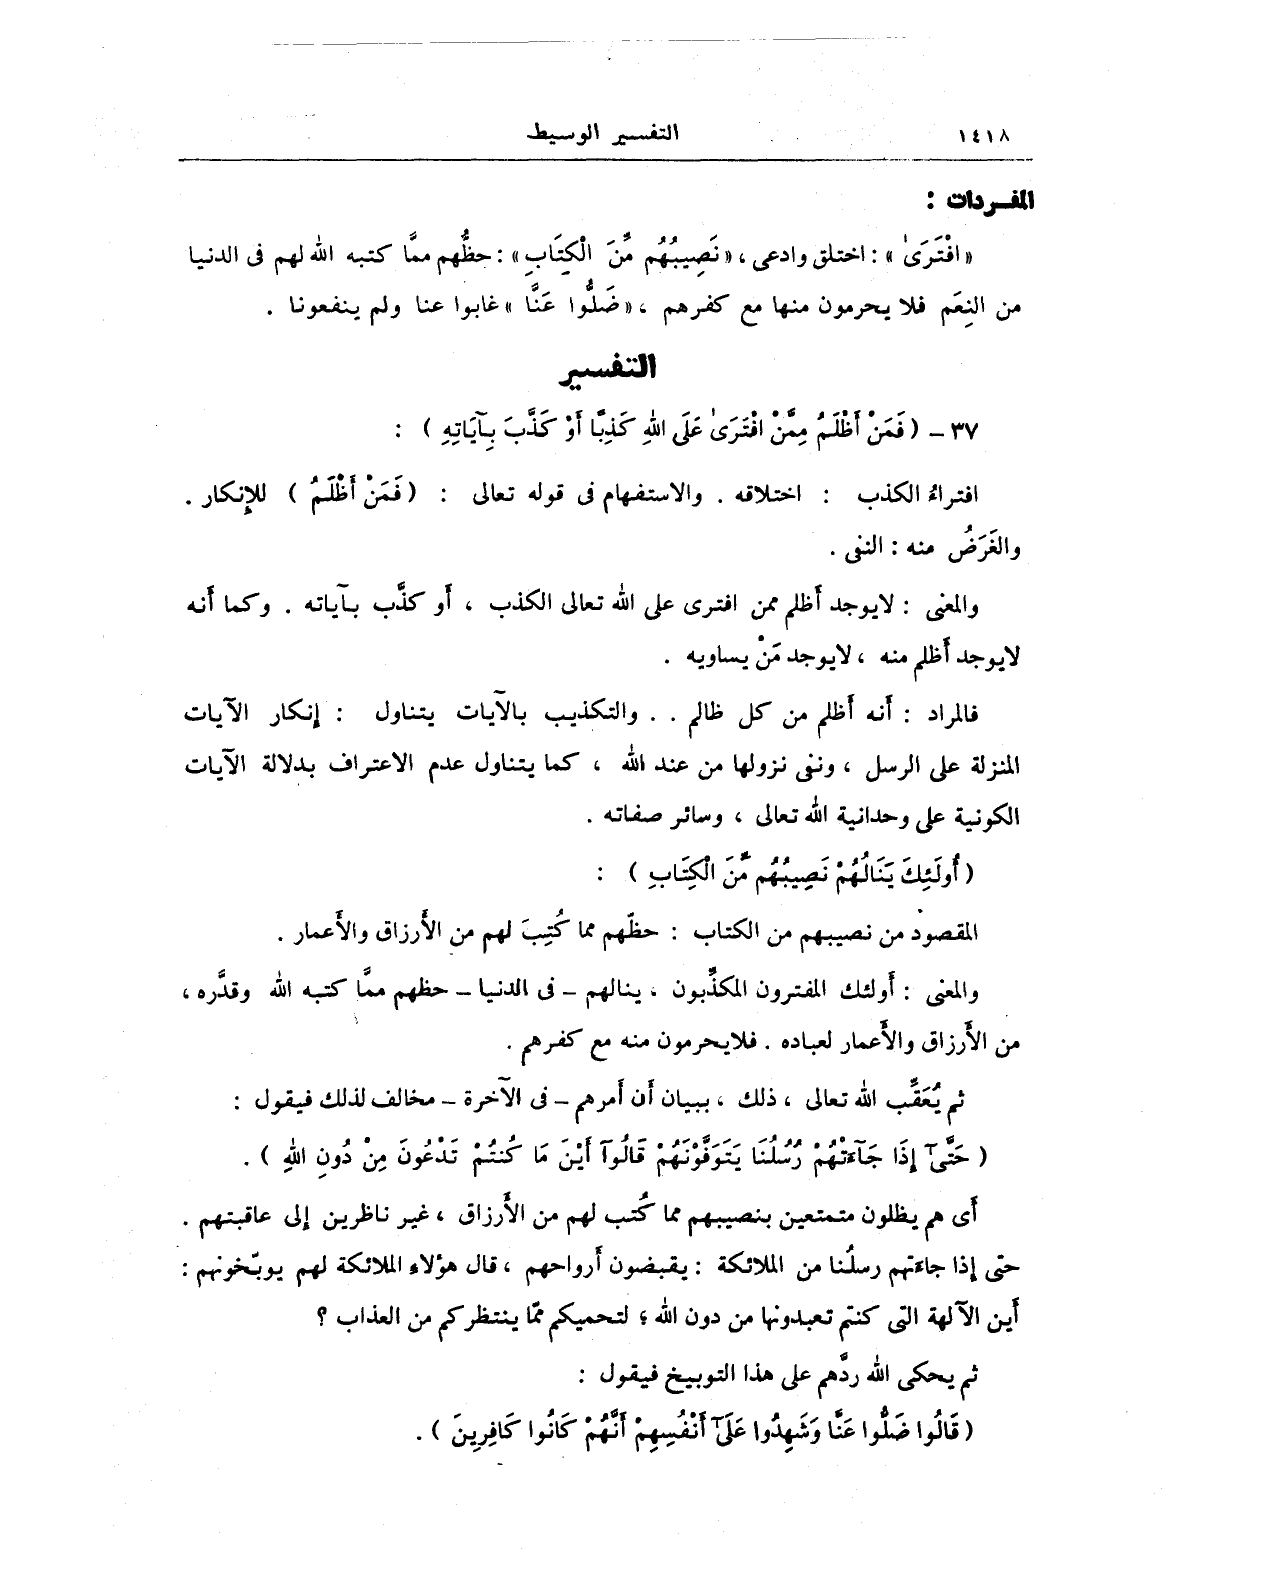 ١٤١٨ التفسير الوسيط
المفردات :
« افْتَرَىٰ » : اختلق وادعى ، « نَصِيبُهُم مِّنَ الْكِتَابِ » : حظُّهم ممَّا كتبه الله لهم فى الدنيا
من النِعَم فلا يحرمون منها مع كفرهم ، « ضَلُّوا عَنَّا » غابوا عنا ولم ينفعونا .
التفسير
٣٧ ــ ( فَمَنْ أَظْلَمُ مِمَّنْ افْتَرَىٰ عَلَى اللهِ كَذِبًا أَوْ كَذَّبَ بِآيَاتِهِ ) :
افتراءُ الكذب : اختلاقه . والاستفهام فى قوله تعالى : ( فَمَنْ أَظْلَمُ ) للإِنكار .
والغَرَضُ منه : النفى .
والمعنى : لايوجد أَظلم ممن افترى على الله تعالى الكذب ، أَو كذَّب بآياته . وكما أَنه
لايوجد أَظلم منه ، لايوجد مَنْ يساويه .
فالمراد : أَنه أَظلم من كل ظالم . . والتكذيب بالآيات يتناول : إنكار الآيات
المنزلة على الرسل ، ونفى نزولها من عند الله ، كما يتناول عدم الاعتراف بدلالة الآيات
الكونية على وحدانية الله تعالى ، وسائر صفاته .
( أُولَئِكَ يَنَالُهُمْ نَصِيبُهُم مِّنَ الْكِتَابِ ) :
المقصود من نصيبهم من الكتاب : حظّهم مما كُتِبَ لهم من الأَرزاق والأَعمار .
والمعنى : أَولئك المفترون المكذِّبون ، ينالهم ــ فى الدنيا ــ حظهم ممَّا كتبه الله وقدَّره ،
من الأَرزاق والأَعمار لعباده . فلايحرمون منه مع كفرهم .
ثم يُعَقِّب الله تعالى ، ذلك ، ببيان أَن أَمرهم ــ فى الآخرة ــ مخالف لذلك فيقول :
( حَتَّىٓ إِذَا جَآءَتْهُمْ رُسُلُنَا يَتَوَفَّوْنَهُمْ قَالُوآ أَيْنَ مَا كُنتُمْ تَدْعُونَ مِنْ دُونِ اللهِ ) .
أَى هم يظلون متمتعين بنصيبهم مما كُتب لهم من الأَرزاق ، غير ناظرين إلى عاقبتهم .
حتى إذا جاءتهم رسلُنا من الملائكة : يقبضون أَرواحهم ، قال هؤلاء الملائكة لهم يوبّخونهم :
أَين الآلهة التى كنتم تعبدونها من دون الله ؛ لتحميكم ممّا ينتظركم من العذاب ؟
ثم يحكى الله ردَّهم على هذا التوبيخ فيقول :
( قَالُوا ضَلُّوا عَنَّا وَشَهِدُوا عَلَىٓ أَنْفُسِهِمْ أَنَّهُمْ كَانُوا كَافِرِينَ ) .